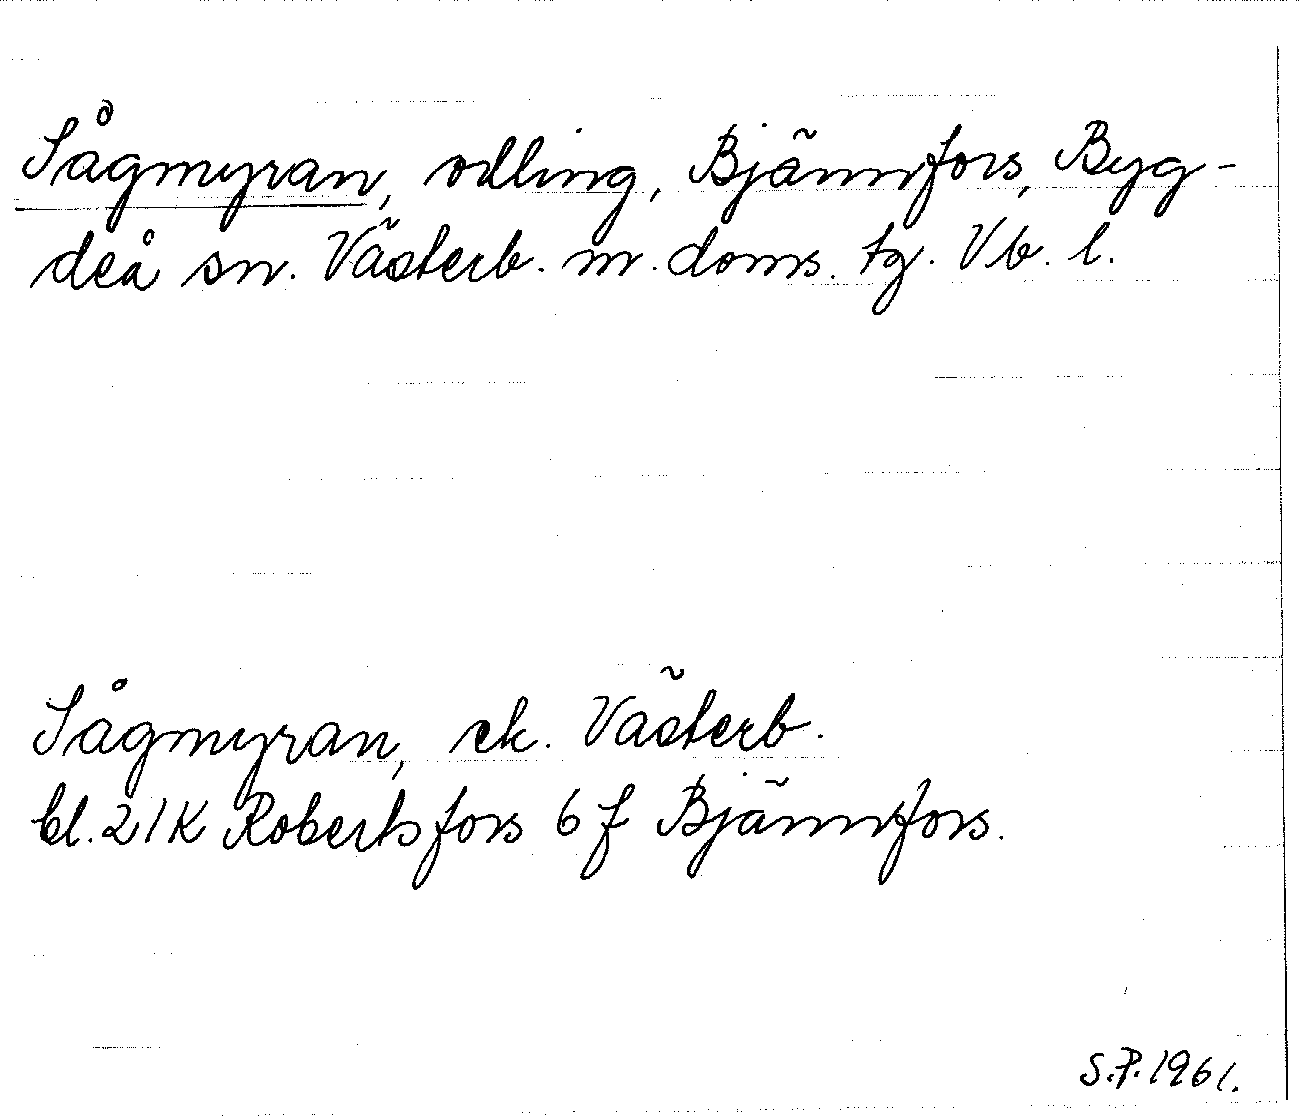 Sågmyran, odling, Bjännfors, Byg-
deå sn. Västerb. m. doms. tg. Vb. l.
Sågmyran, ek. Västerb.
bl. 21K Robertsfors 6 f Bjännfors.
S.P. 1961.